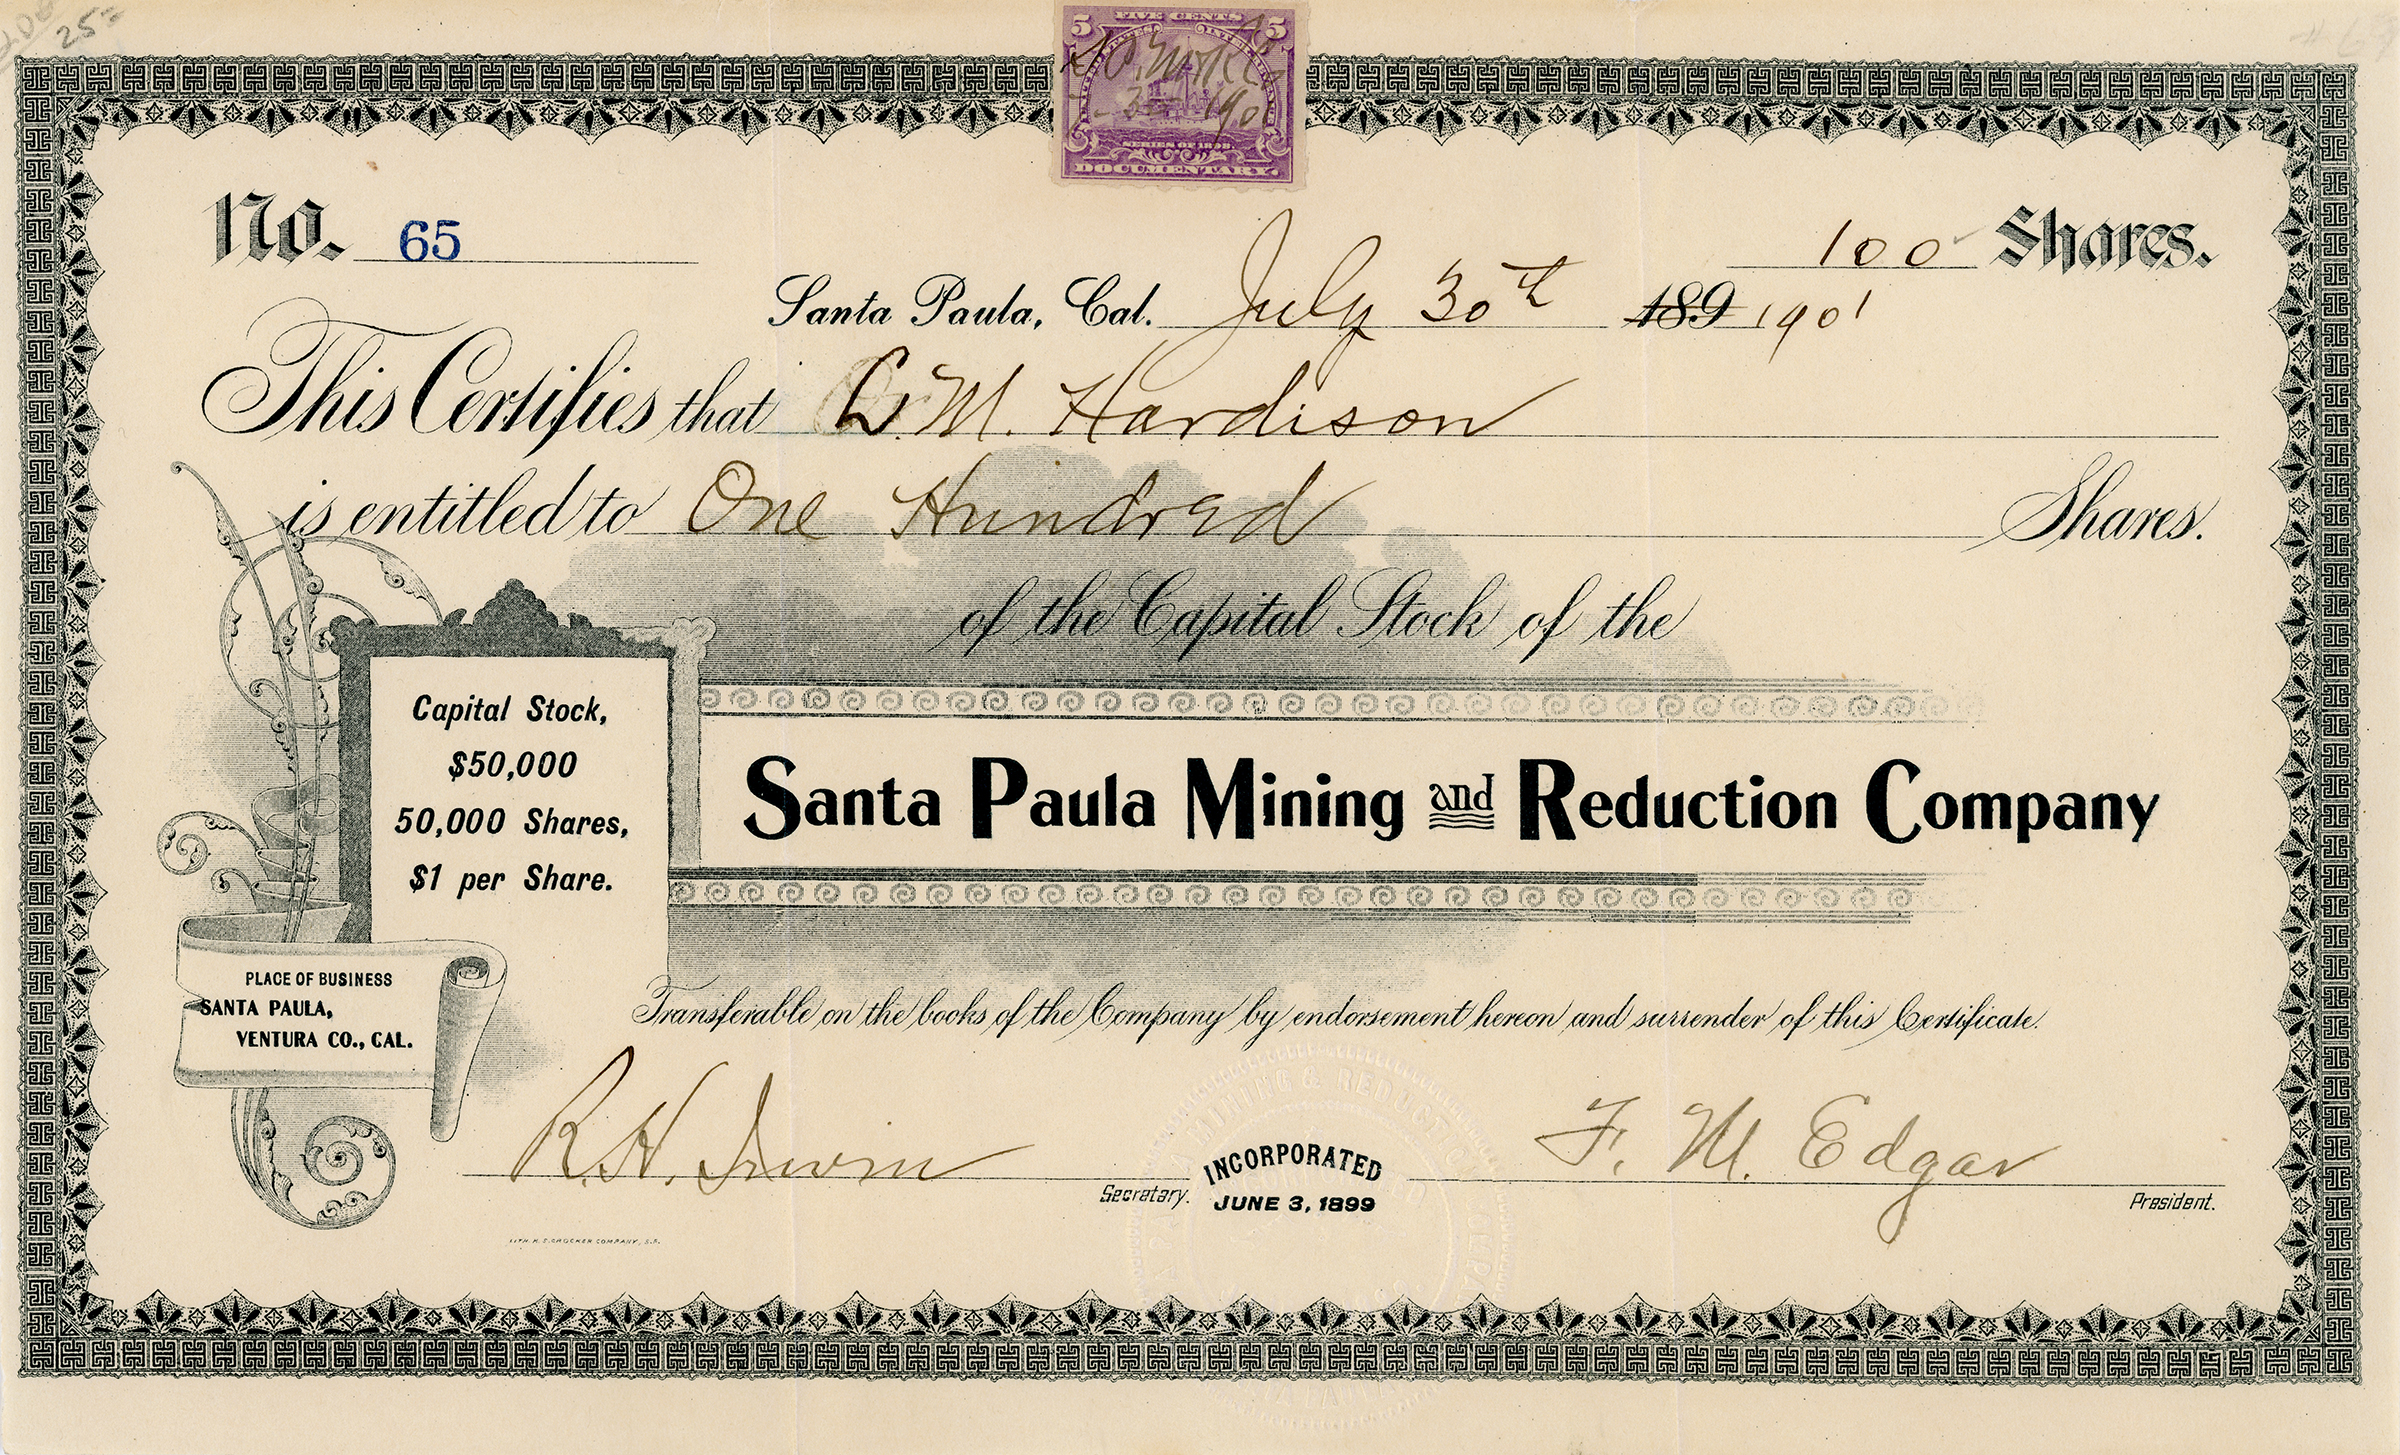 25
5 FIVE CENTS 5
SERIES OF 1898.
DOCUMENTARY.
No. 65
100 Shares.
Santa Paula, Cal. July 30th 189 1901
This Certifies that L. M. Hardison
is entitled to One Hundred Shares.
of the Capital Stock of the
Capital Stock,
$50,000
50,000 Shares,
$1 per Share.
Santa Paula Mining and Reduction Company
PLACE OF BUSINESS
SANTA PAULA,
VENTURA CO., CAL.
Transferable on the books of the Company by endorsement hereon and surrender of this Certificate.
R. H. Irwin Secretary.
INCORPORATED
JUNE 3, 1899
F. M. Edgar President.
LITH. H. S. CROCKER COMPANY, S.F.